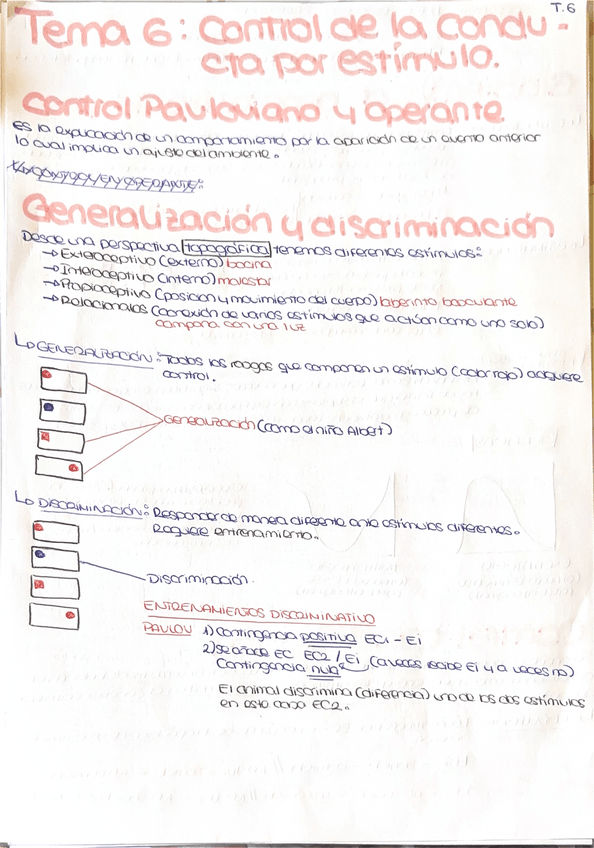 T.6
Tema 6: Control de la condu-
cta por estímulo.
Control Pavloviano y operante
Es la explicación de un comportamiento por la aparición de un evento anterior
lo cual implica un ajuste del ambiente.
Generalización y discriminación
Desde una perspectiva topográfica tenemos diferentes estímulos:
→ Exteroceptivo (externo) bocina
→ Interoceptivo (interno) malestar
→ Propioceptivo (posición y movimiento del cuerpo) laberinto, basculante
→ Relacionales (conexión de varios estímulos que actúan como uno solo)
campana con una luz
↳ GENERALIZACIÓN: Todos los rasgos que componen un estímulo (color rojo) adquiere
control.
Generalización (como el niño Albert)
↳ DISCRIMINACIÓN: Responder de manera diferente ante estímulos diferentes.
Requiere entrenamiento.
Discriminación.
ENTRENAMIENTOS DISCRIMINATIVO
PAVLOV 1) Contingencia positiva EC1 - Ei
2) se añade EC EC2 / Ei
Contingencia nula (a veces recibe Ei y a veces no)
El animal discrimina (diferencia) uno de los dos estímulos
en este caso EC2.